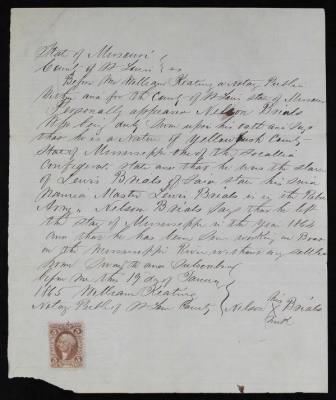 State of Missouri
County of St Louis ss
Before Me William Keating a Notary Public
Within and for the County of St Louis State of Missouri
Personally appears Nelson Brials
Who being duly Sworn upon his oath and Says
that he is a Native of Yellow County
State of Mississippi one of the So called
Confederat State and that he was the Slave
of Lewis Brials of Said State his
Master Lewis Brials is in the Rebel
Army Nelson Brials Says that he left
the State of Mississippi in the Year 1864
and that he has been working on Boat
on the Mississippi River
from
before Me this 19 day of January
1865 William Keating
Notary Public St Louis County
Nelson his X mark Brials